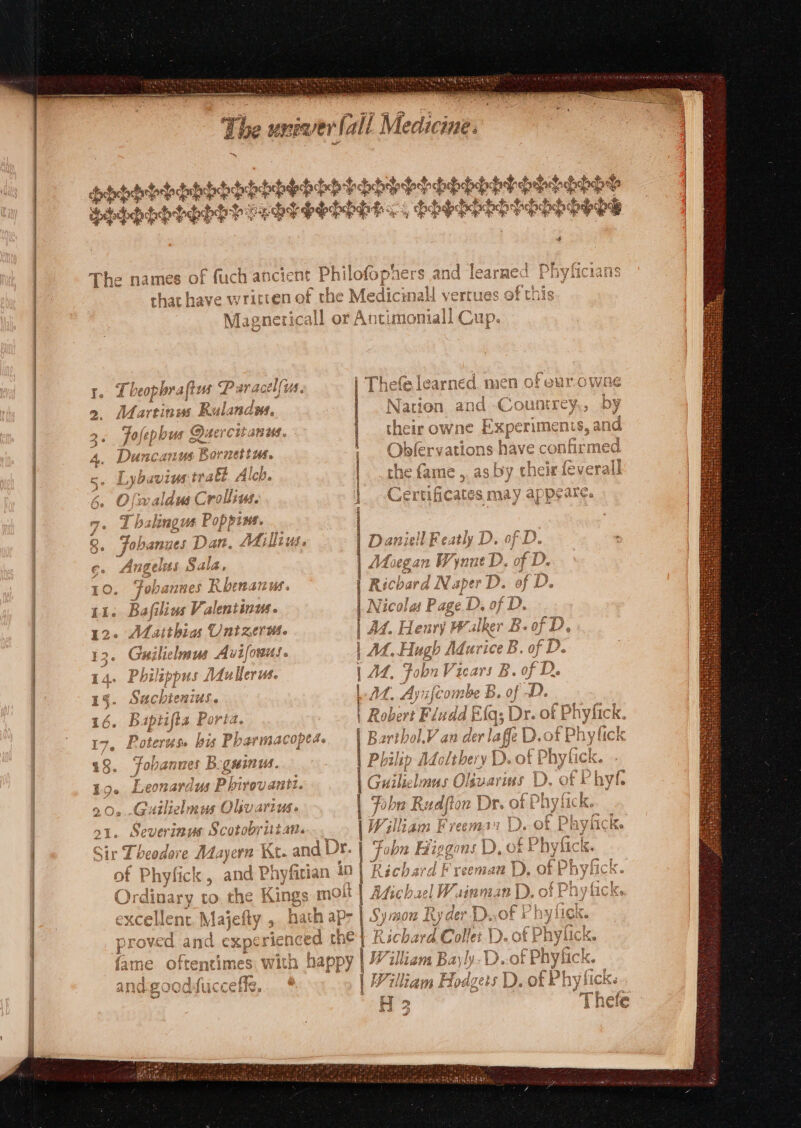 The univerſall Medicine.
The names of ſuch ancient Philoſophers and learned Phyſicians
that have written of the Medicinall vertues of this
Magneticall or Antimoniall Cup.
1. Theophraſtus Paracelſus.
2. Martinus Rulandus.
3. Joſephus Quercitanus.
4. Duncanus Bornettus.
5. Lybavius tract Alch.
6. Oſwaldus Crollius.
7. Thalingus Poppius.
8. Johannes Dan. Millius.
9. Angelus Sala.
10. Johannes Rhenanus.
11. Baſilius Valentinus.
12. Matthias Untzerus.
13. Guilielmus Aviſonus.
14. Philippus Mullerus.
15. Suchtenius.
16. Baptiſta Porta.
17. Poterus. his Pharmacopea.
18. Johannes Beguinus.
19. Leonardus Phirovanti.
20. Guilielmus Olivarius.
21. Severinus Scotobritan.
Sir Theodore Mayern Kt. and Dr.
of Phyſick, and Phyſitian in
Ordinary to the Kings moſt
excellent Majeſty, hath ap-
proved and experienced the
ſame oftentimes with happy
and good ſucceſſe.
Theſe learned men of our owne
Nation and Countrey, by
their owne Experiments, and
Obſervations have confirmed
the ſame, as by their ſeverall
Certificates may appeare.
Daniell Featly D. of D.
Moegan Wynne D. of D.
Richard Naper D. of D.
Nicolas Page D. of D.
M. Henry Walker B. of D.
M. Hugh Murice B. of D.
M. John Vicars B. of D.
M. Ayuſcombe B. of D.
Robert Fludd Eſq; Dr. of Phyſick.
Barthol. Van der laſſe D. of Phyſick
Philip Molthery D. of Phyſick.
Guilielmus Olivarius D. of Phyſ.
John Rudſton Dr. of Phyſick.
William Freeman D. of Phyſick.
John Higgons D. of Phyſick.
Richard Freeman D. of Phyſick.
Michael Wainman D. of Phyſick.
Symon Ryder D. of Phyſick.
Richard Collet D. of Phyſick.
William Bayly D. of Phyſick.
William Hodgets D. of Phyſick.
H 3 Theſe